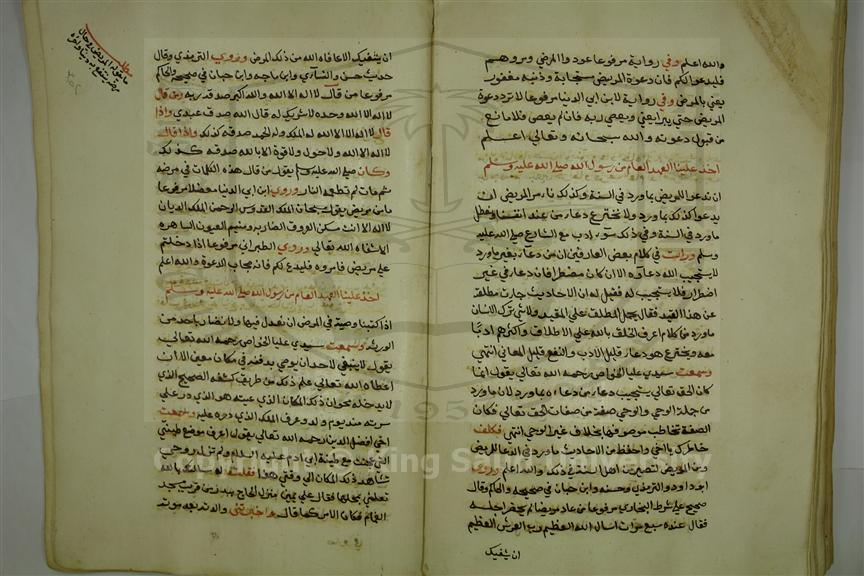 والله اعلم وفي رواية مرفوعا عودوا المرضي ومروهم
فليدعوا لكم فان دعوة المريض مستجابة وذنبه مغفور
يعني بالمرض وفي رواية لابن ابي الدنيا مرفوعا لا ترد دعوة
المريض حتي يبرا يعني ويعصي ربه فان لم يعص فلا مانع
من قبول دعوته والله سبحانه وتعالي اعلم
اخذ علينا العهد العام من رسول الله صلي الله عليه وسلم
ان ندعوا للمريض بما ورد في السنة وكذلك نامر المريض ان
يدعوا كذلك بما ورد ولا نخترع دعاء من عند انفسنا ونعطل
ما ورد في السنة وفي ذلك سوء ادب مع الشارع صلي الله عليه
وسلم ورايت في كلام بعض العارفين ان من دعا بغير ما ورد
لا يستجيب الله دعاءه الا ان كان مضطرا فان دعا في غير
اضطرار فلا يستجيب له فقيل له ان الاحاديث جاءت مطلقة
عن هذا القيد فقال يحمل المطلق علي المقيد فلا شي ترك الانسان
ما ورد من كلام اعرف الخلق بالله علي الاطلاق واكثرهم ادبا
معه ويخترع هو دعاء قليل الادب والنفع قليل المعاني انتهي
وسمعت سيدي عليا الخواص رحمه الله تعالي يقول انما
كان الحق تعالي يستجيب دعاء من دعاه بما ورد لان ما ورد
من جملة الوحي والوحي صفة من صفات الحق تعالي فكان
الصفة تخاطب موصوفها بخلاف غير الوحي انتهي فكلف
خاطرك يا اخي واحفظ من الاحاديث ما ورد في الدعاء للمريض
ومن المريض لتصير من اهل السنة في ذلك والله اعلم وروي
ابو داود والترمذي وحسنه وابن حبان في صحيحه والحاكم وقال
صحيح علي شرط البخاري مرفوعا من عاد مريضا لم يحضر اجله
فقال عنده سبع مرات اسال الله العظيم رب العرش العظيم
ان يشفيك
ان يشفيك الا عافاه الله من ذلك المرض وروي الترمذي وقال
حديث حسن والنسآئي وابن ماجه وابن حبان في صحيحه والحاكم
مرفوعا من قال لا اله الا الله والله اكبر صدقه ربه ومن قال
لا اله الا الله وحده لا شريك له قال الله صدق عبدي واذا
قال لا اله الا الله له الملك وله الحمد صدقه كذلك واذا قال
لا اله الا الله ولا حول ولا قوة الا بالله صدقه كذلك
وكان صلي الله عليه وسلم يقول من قال هذه الكلمات في مرضه
ثم مات لم تطعمه النار وروي ابن ابي الدنيا معضلا مرفوعا
ما من مريض يقول سبحان الملك القدوس الرحمن الملك الديان
لا اله الا انت مسكن العروق الضاربة ومنيم العيون الساهرة
الا شفاه الله تعالي وروي الطبراني مرفوعا اذا دخلتم
علي مريض فامروه فليدع لكم فانه مجاب الدعوة والله اعلم
اخذ علينا العهد العام من رسول الله صلي الله عليه وسلم
اذا كتبنا وصية في المرض ان نعدل فيها ولا نضار باحد من
الورثه وسمعت سيدي عليا الخواص رحمه الله تعالي
يقول لا ينبغي لاحد ان يوصي بدفنه في مكان معين الا ان
اعطاه الله تعالي علم ذلك من طريق كشفه الصحيح الذي
لا يدخله محو ان ذلك المكان الذي عينه هو الذي ذر علي
سرته منه يوم ولد وعرف الملك الذي ذره عليه وسمعت
اخي افضل الدين رحمه الله تعالي يقول اعرف موضع طينتي
التي عجنت مع طينة ابي ادم عليه السلام ولم تزل روحي
تشاهد ذلك المكان الي وقتي هذا فقلت
فقال علي يمين منزل الحاج ببدر من قريب مسجد
الغمام فكان الامر كما قال والده بعد موته